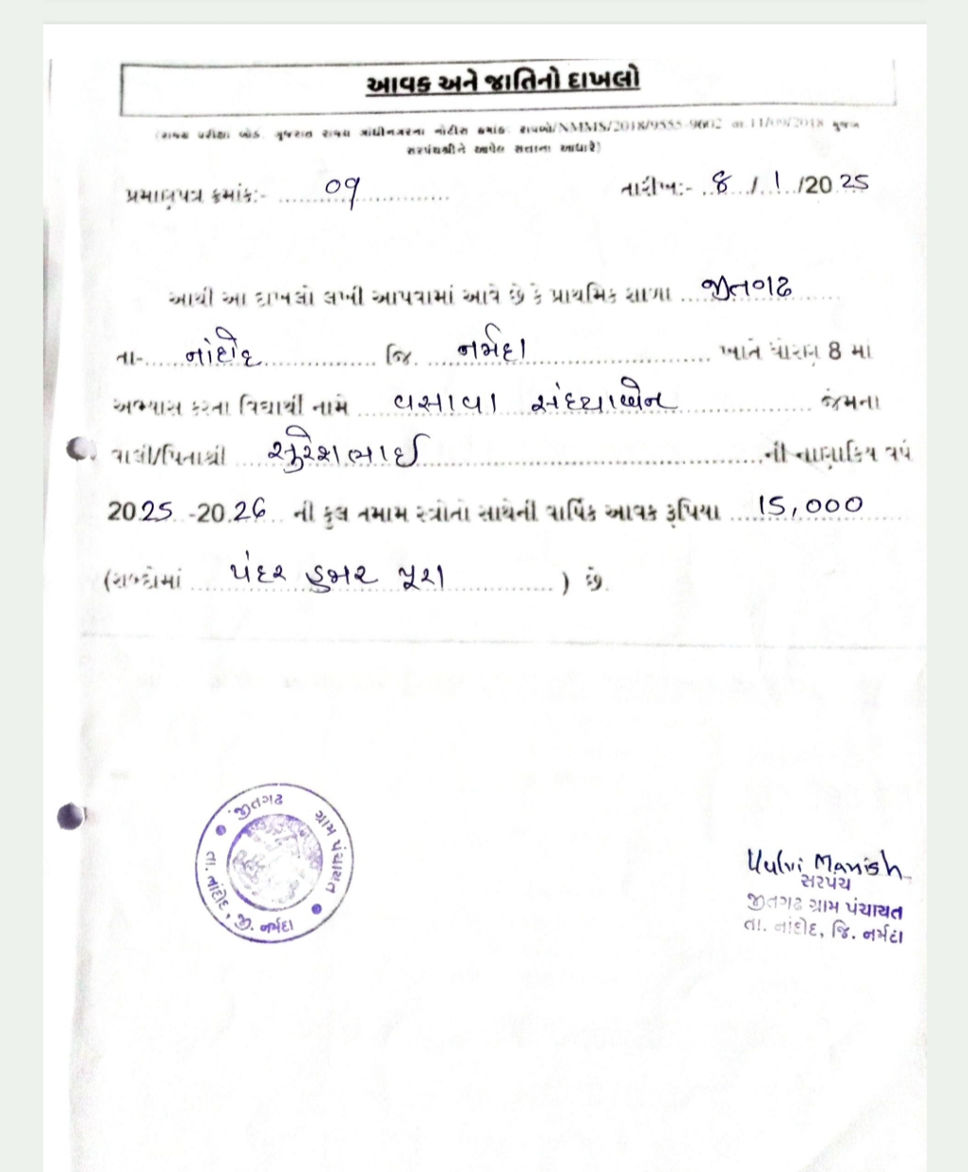 આવક અને જાતિનો દાખલો
(રાજ્ય પરીક્ષા બોર્ડ, ગુજરાત રાજ્ય ગાંધીનગરના નોટીસ ક્રમાંક: રાપબો/NMMS/2018/9555-9602 તા.11/09/2018 મુજબ
સરપંચશ્રીને આપેલ સત્તાના આધારે)
પ્રમાણપત્ર ક્રમાંક:- 09 તારીખ:- 8/1/2025
આથી આ દાખલો લખી આપવામાં આવે છે કે પ્રાથમિક શાળા જીતગઢ
તા- નાંદોદ જિ. નર્મદા ખાતે ધોરણ 8 માં
અભ્યાસ કરતા વિદ્યાર્થી નામે વસાવા સંધ્યાબેન જેમના
વાલી/પિતાશ્રી સુરેશભાઈ ની નાણાકિય વર્ષ
2025-2026 ની કુલ તમામ સ્ત્રોતો સાથેની વાર્ષિક આવક રૂપિયા 15,000
(શબ્દોમાં પંદર હજાર પૂરા) છે.
જીતગઢ ગ્રામ પંચાયત
તા. નાંદોદ, જી. નર્મદા
Manish
સરપંચ
જીતગઢ ગ્રામ પંચાયત
તા. નાંદોદ, જિ. નર્મદા